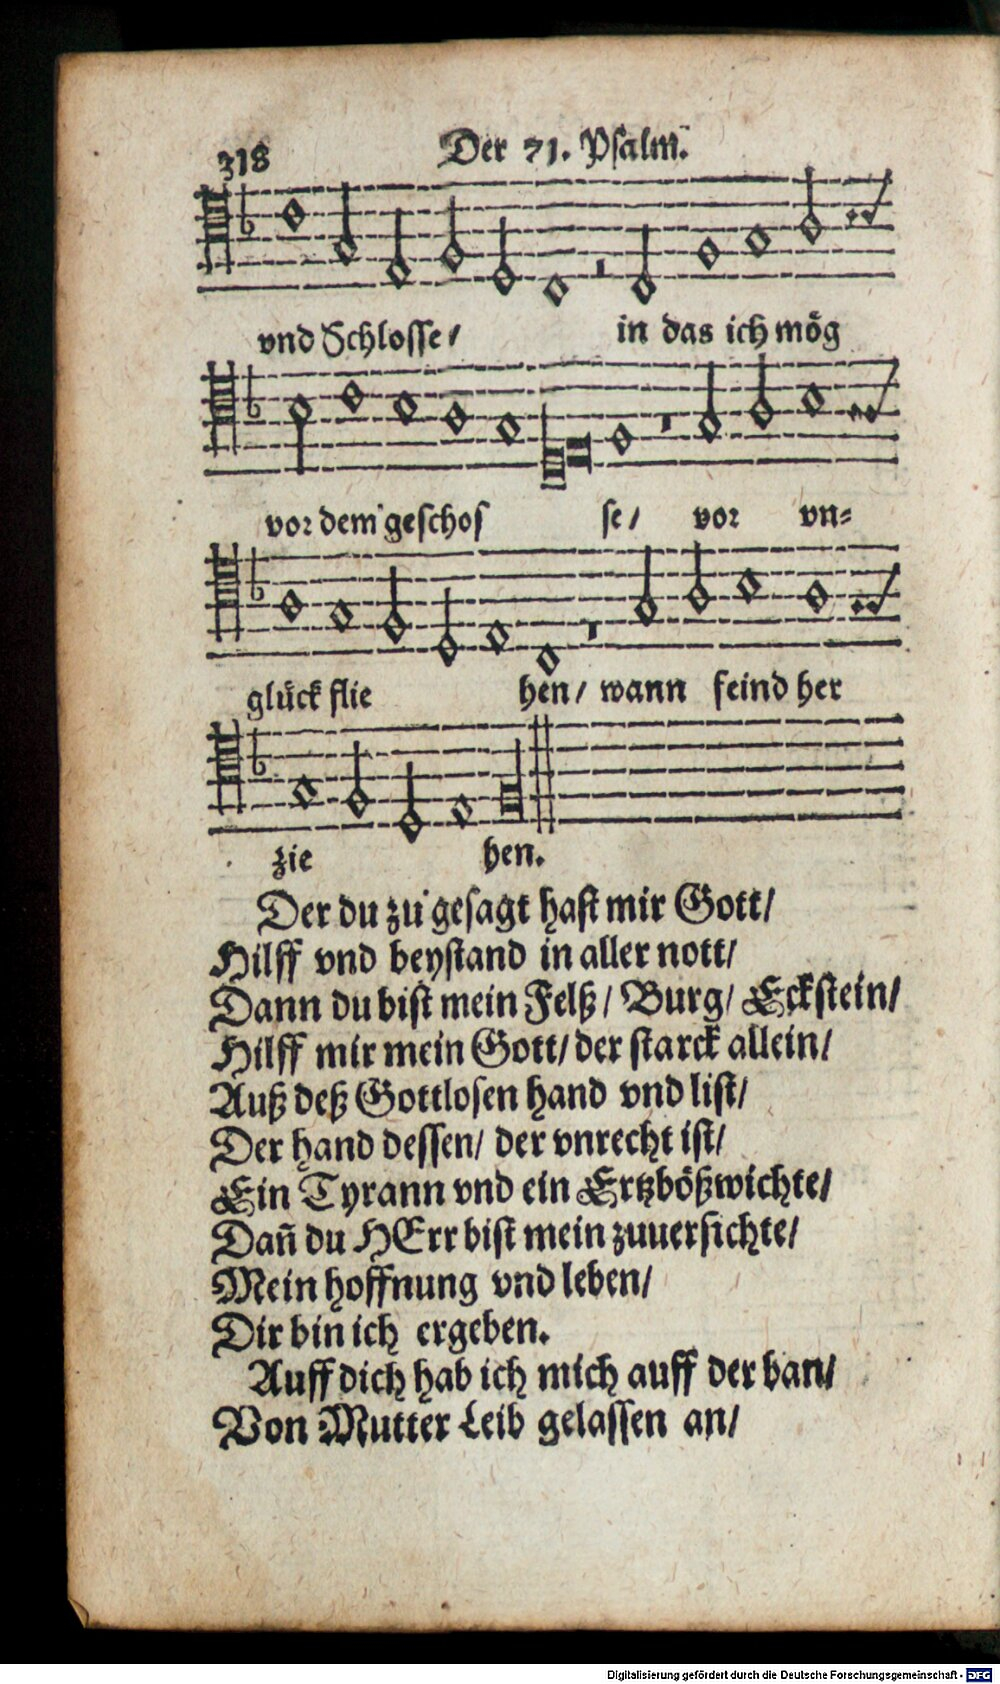 318 Der 71. Psalm.
vnd Schlosse/ in das ich mög
vor dem geschos se/ vor vn-
glück flie hen/ wann feind her
zie hen.
Der du zu gesagt hast mir Gott/
Hilff vnd beystand in aller nott/
Dann du bist mein Felß/ Burg/ Eckstein/
Hilff mir mein Gott/ der starck allein/
Auß deß Gottlosen hand vnd list/
Der hand dessen/ der vnrecht ist/
Ein Tyrann vnd ein Ertzbößwichte/
Dañ du HErr bist mein zuuersichte/
Mein hoffnung vnd leben/
Dir bin ich ergeben.
Auff dich hab ich mich auff der ban/
Von Mutter Leib gelassen an/
Digitalisierung gefördert durch die Deutsche Forschungsgemeinschaft - DFG